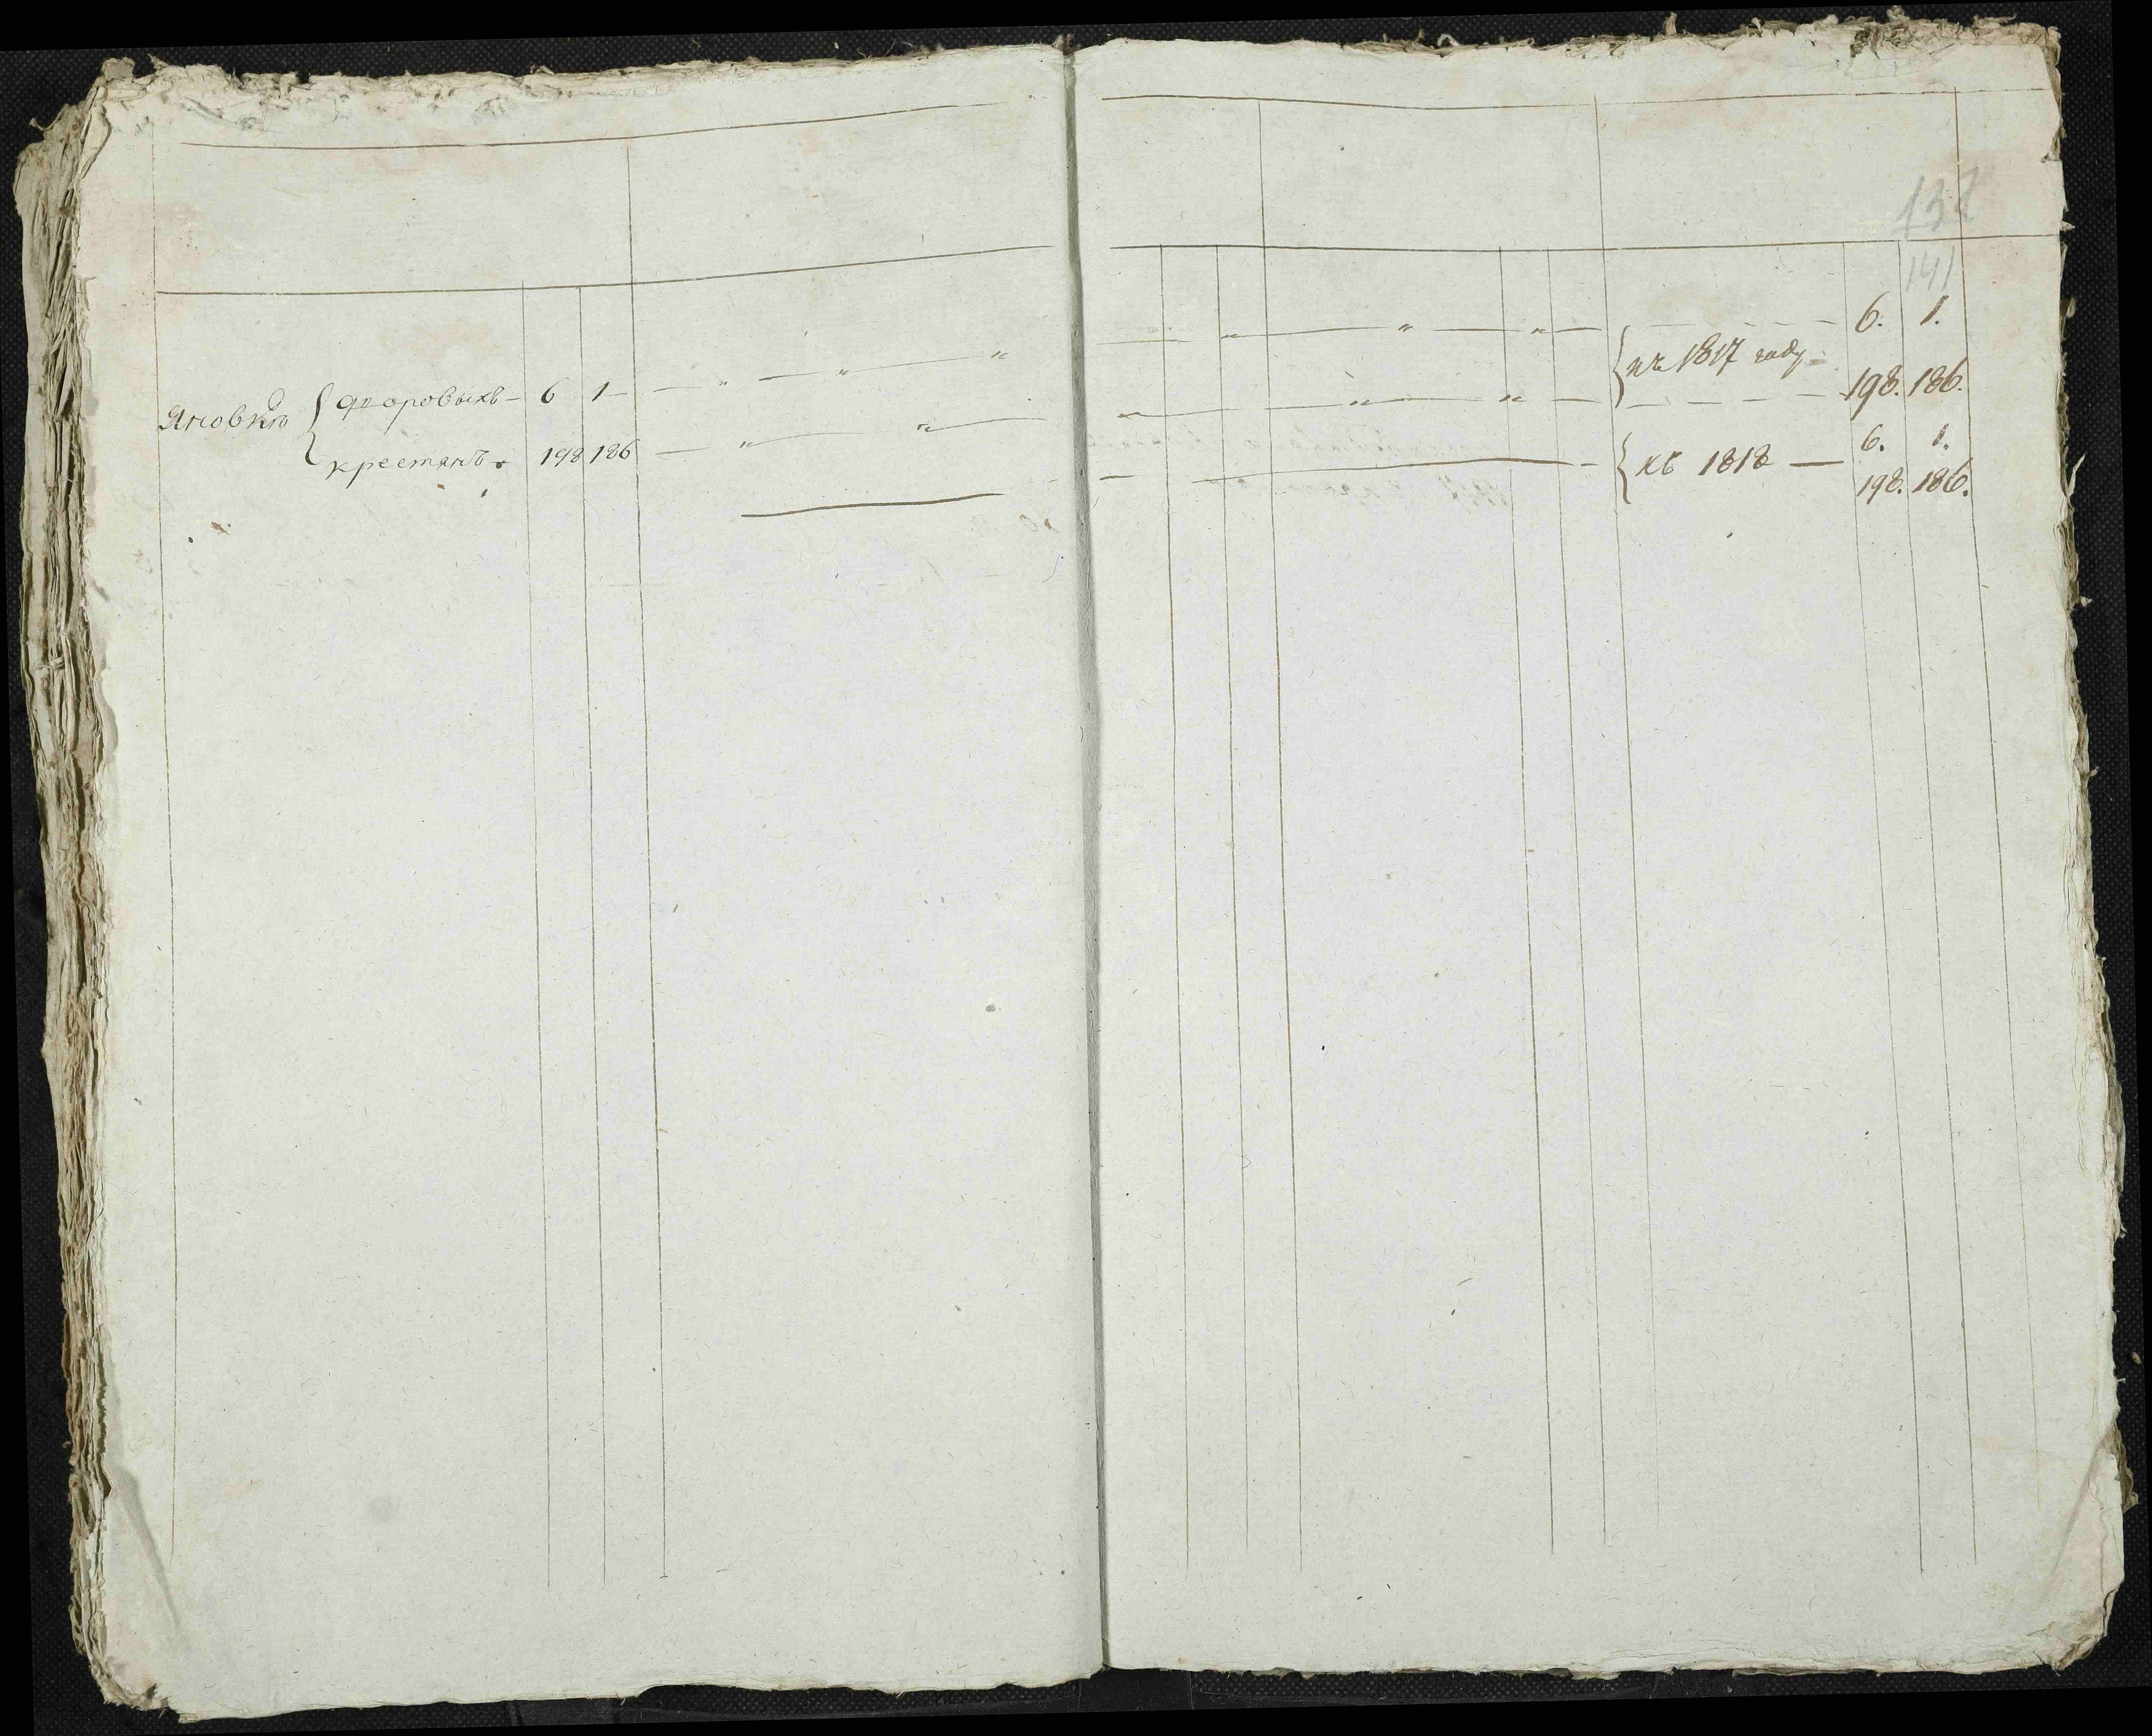 137
141
къ 1817 году 6. 1.
198. 186.
Яновкѣ дворовыхъ 6 1
крестянъ 198 186
къ 1818 6. 1.
198. 186.